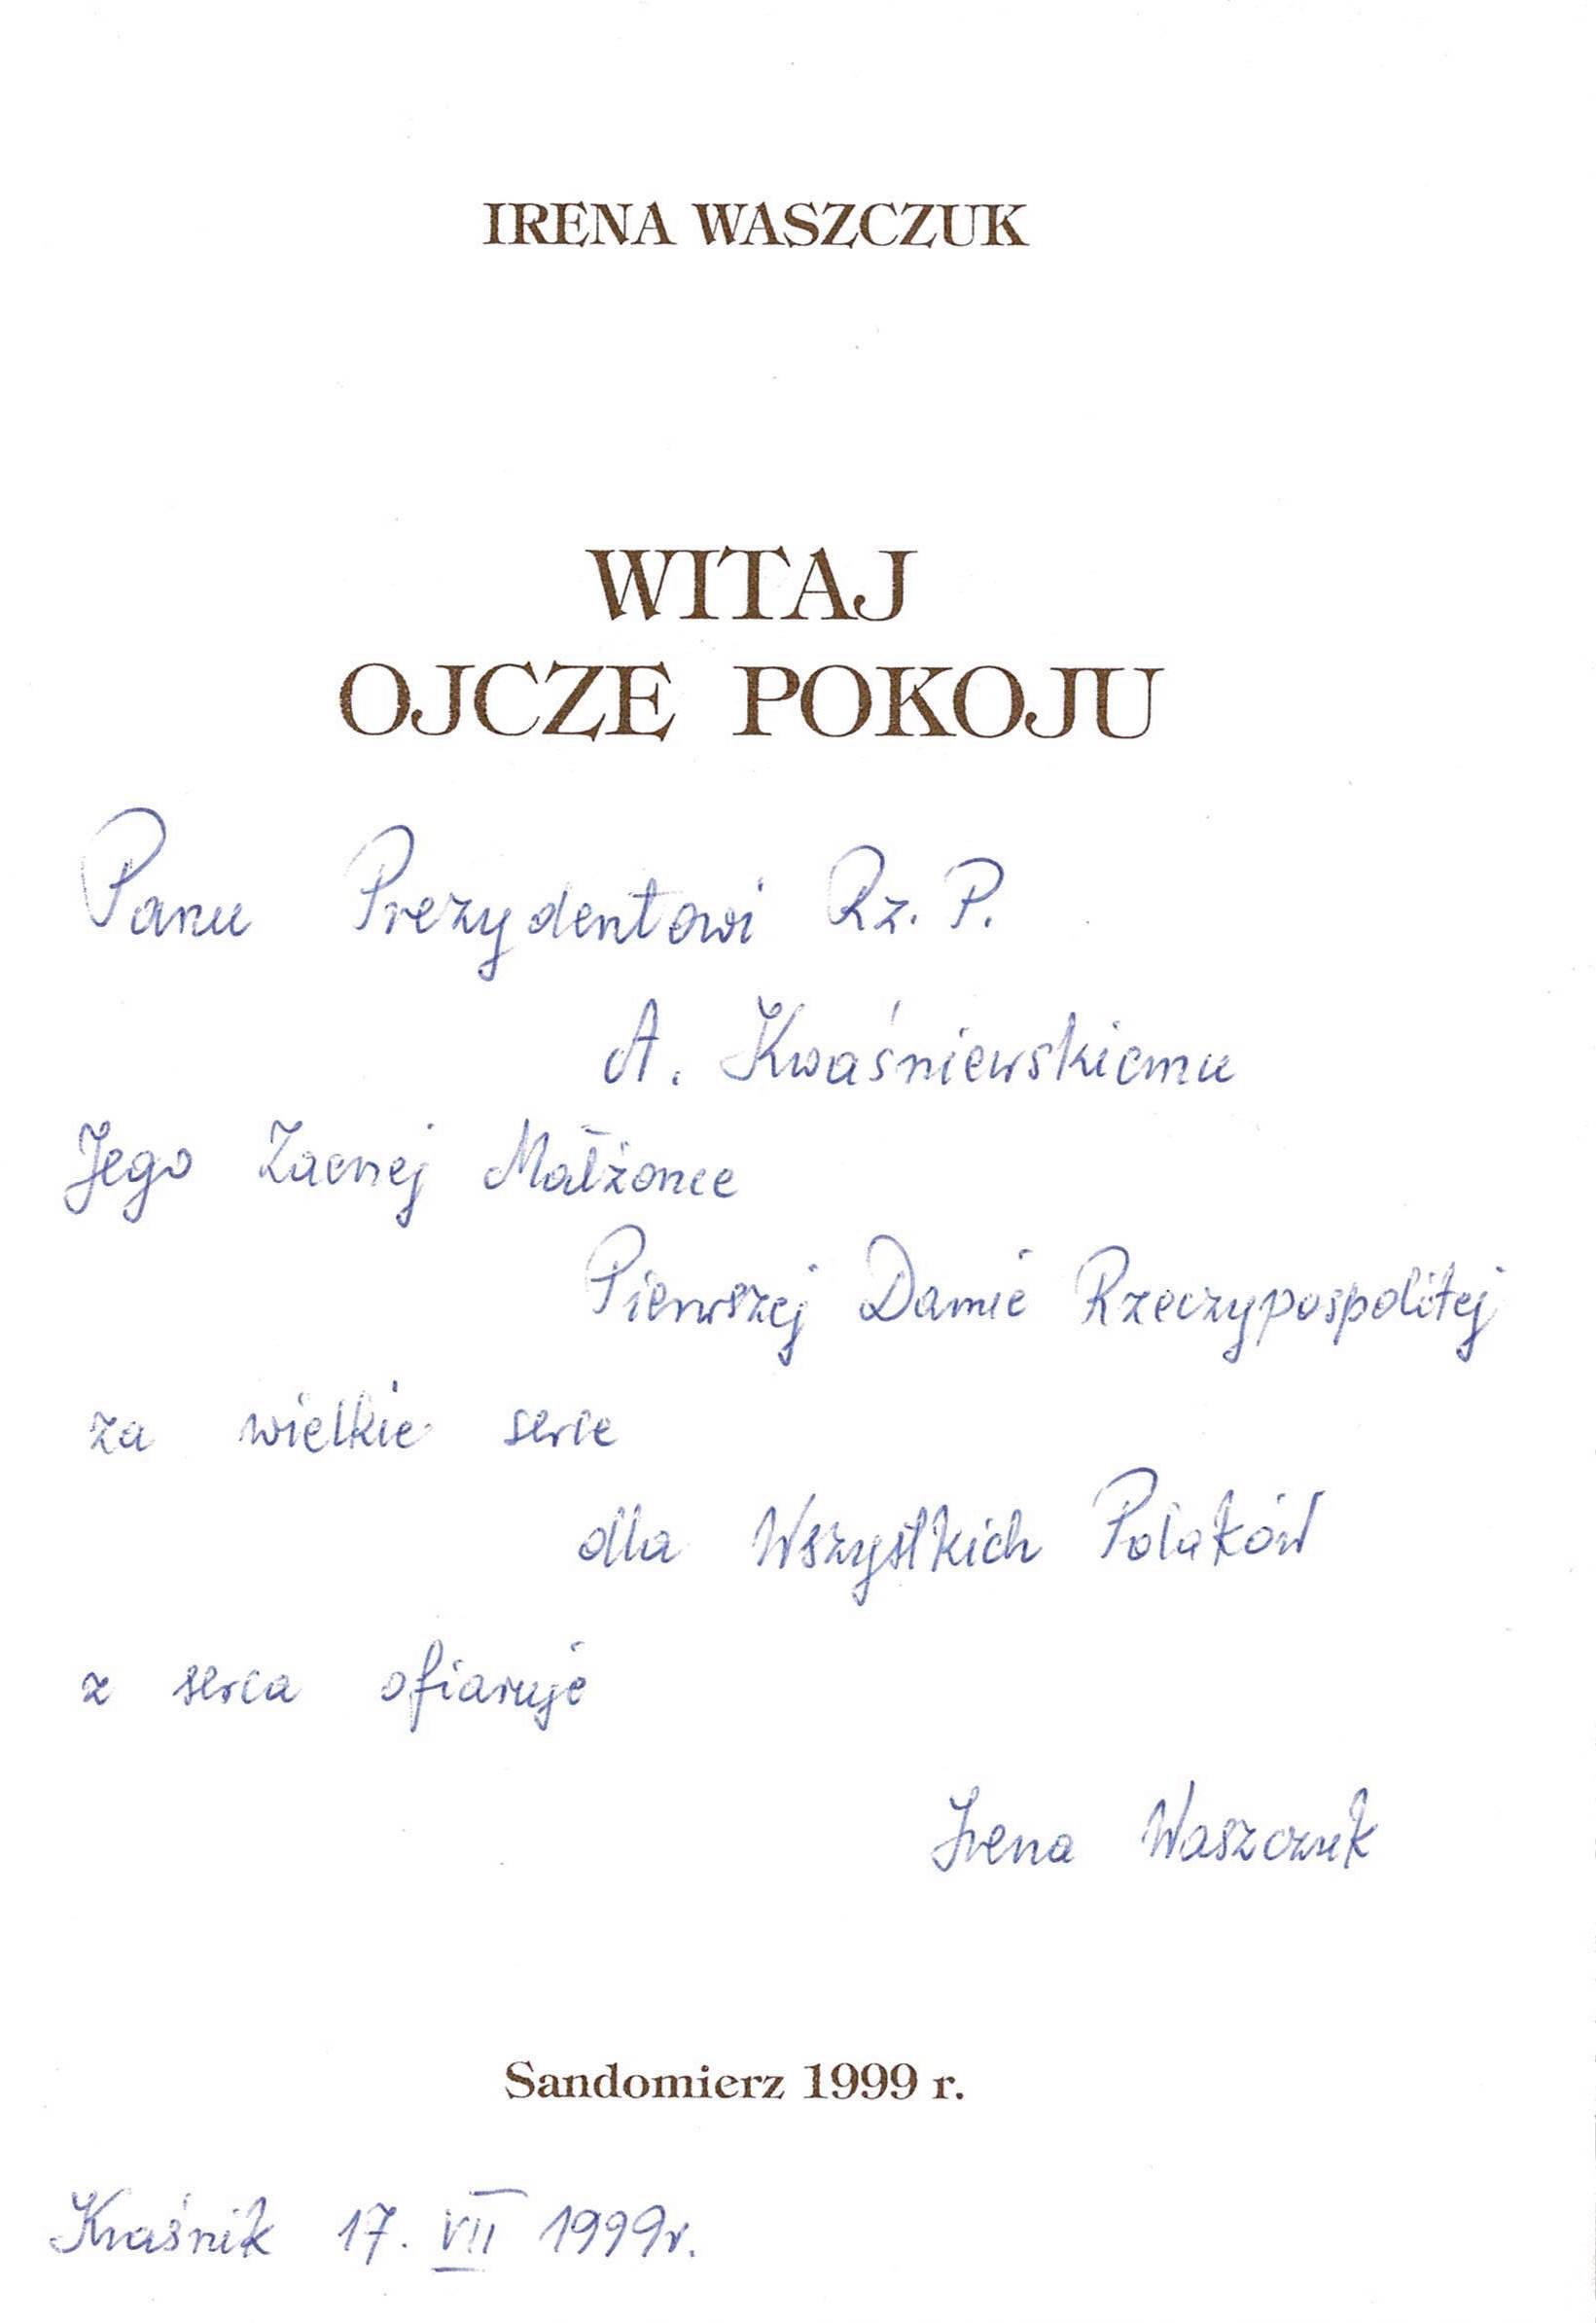 IRENA WASZCZUK
WITAJ
OJCZE POKOJU
Panu Prezydentowi Rz. P.
A. Kwaśniewskiemu
Jego Zacnej Małżonce
Pierwszej Damie Rzeczypospolitej
za wielkie serce
dla Wszystkich Polaków
z serca ofiaruje
Irena Waszczuk
Sandomierz 1999 r.
Kraśnik 17. VII 1999r.